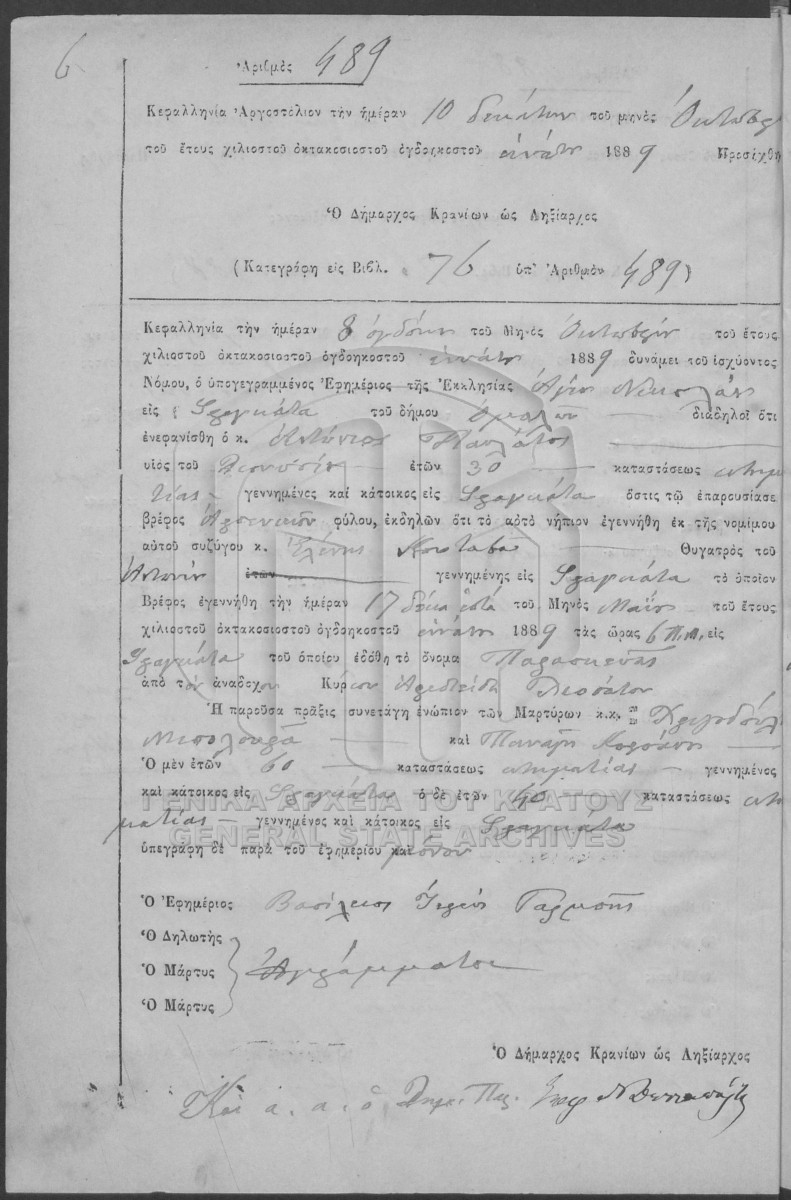 6
Ἀριθμὸς 489
Κεφαλληνία Ἀργοστόλιον τὴν ἡμέραν 10 δεκάτην τοῦ μηνὸς Ὀκτωβρ
τοῦ ἔτους χιλιοστοῦ ὀκτακοσιοστοῦ ὀγδοηκοστοῦ ἐννάτου 1889 Προσήχθη
Ὁ Δήμαρχος Κρανίων ὡς Ληξίαρχος
(Κατεγράφη εἰς Βιβλ. 76 ὑπ' Ἀριθμὸν 489)
Κεφαλληνία τὴν ἡμέραν 8 ὀγδόην τοῦ Μηνὸς Ὀκτωβρίου τοῦ ἔτους
χιλιοστοῦ ὀκτακοσιοστοῦ ὀγδοηκοστοῦ ἐννάτου 1889 δυνάμει τοῦ ἰσχύοντος
Νόμου, ὁ ὑπογεγραμμένος Ἐφημέριος τῆς Ἐκκλησίας Ἁγίου Νικολάου
εἰς Φραγκάτα τοῦ δήμου Ὁμαλῶν διαδηλοῖ ὅτι
ἐνεφανίσθη ὁ κ. Ἀντώνιος Παυλάτος
υἱὸς τοῦ Διονυσίου ἐτῶν 30 καταστάσεως κτημα
τίας γεννημένος καὶ κάτοικος εἰς Φραγκάτα ὅστις τῷ ἐπαρουσίασε
βρέφος ἀρσενικοῦ φύλου, ἐκδηλῶν ὅτι τὸ αὐτὸ νήπιον ἐγεννήθη ἐκ τῆς νομίμου
αὐτοῦ συζύγου κ. Ἑλένης Θυγατρὸς τοῦ
Ἀντωνίου ἐτῶν γεννημένης εἰς Φραγκάτα τὸ ὁποῖον
Βρέφος ἐγεννήθη τὴν ἡμέραν 17 δέκα ἑπτά τοῦ Μηνὸς Μαΐου τοῦ ἔτους
χιλιοστοῦ ὀκτακοσιοστοῦ ὀγδοηκοστοῦ ἐννάτου 1889 τὰς ὥρας 6 π.μ. εἰς
Φραγκάτα τοῦ ὁποίου ἐδόθη τὸ ὄνομα Παρασκευᾶς
ἀπὸ τὸν ἀνάδοχον Κύριον Ἀριστείδη
Ἡ παροῦσα πρᾶξις συνετάγη ἐνώπιον τῶν Μαρτύρων κ.κ.
καὶ Παναγῆ
Ὁ μὲν ἐτῶν 60 καταστάσεως κτηματίας γεννημένος
καὶ κάτοικος εἰς Φραγκάτα ὁ δὲ ἐτῶν 40 καταστάσεως κτη
ματίας γεννημένος καὶ κάτοικος εἰς Φραγκάτα
ὑπεγράφη δὲ παρὰ τοῦ ἐφημερίου καὶ μόνον
ΓΕΝΙΚΑ ΑΡΧΕΙΑ ΤΟΥ ΚΡΑΤΟΥΣ
GENERAL STATE ARCHIVES
Ὁ Ἐφημέριος Βασίλειος Ἱερεύς
Ὁ Δηλωτὴς
Ὁ Μάρτυς Ἀγράμματοι
Ὁ Μάρτυς
Ὁ Δήμαρχος Κρανίων ὡς Ληξίαρχος
Καὶ α. α. ὁ Δημ. Παρ.